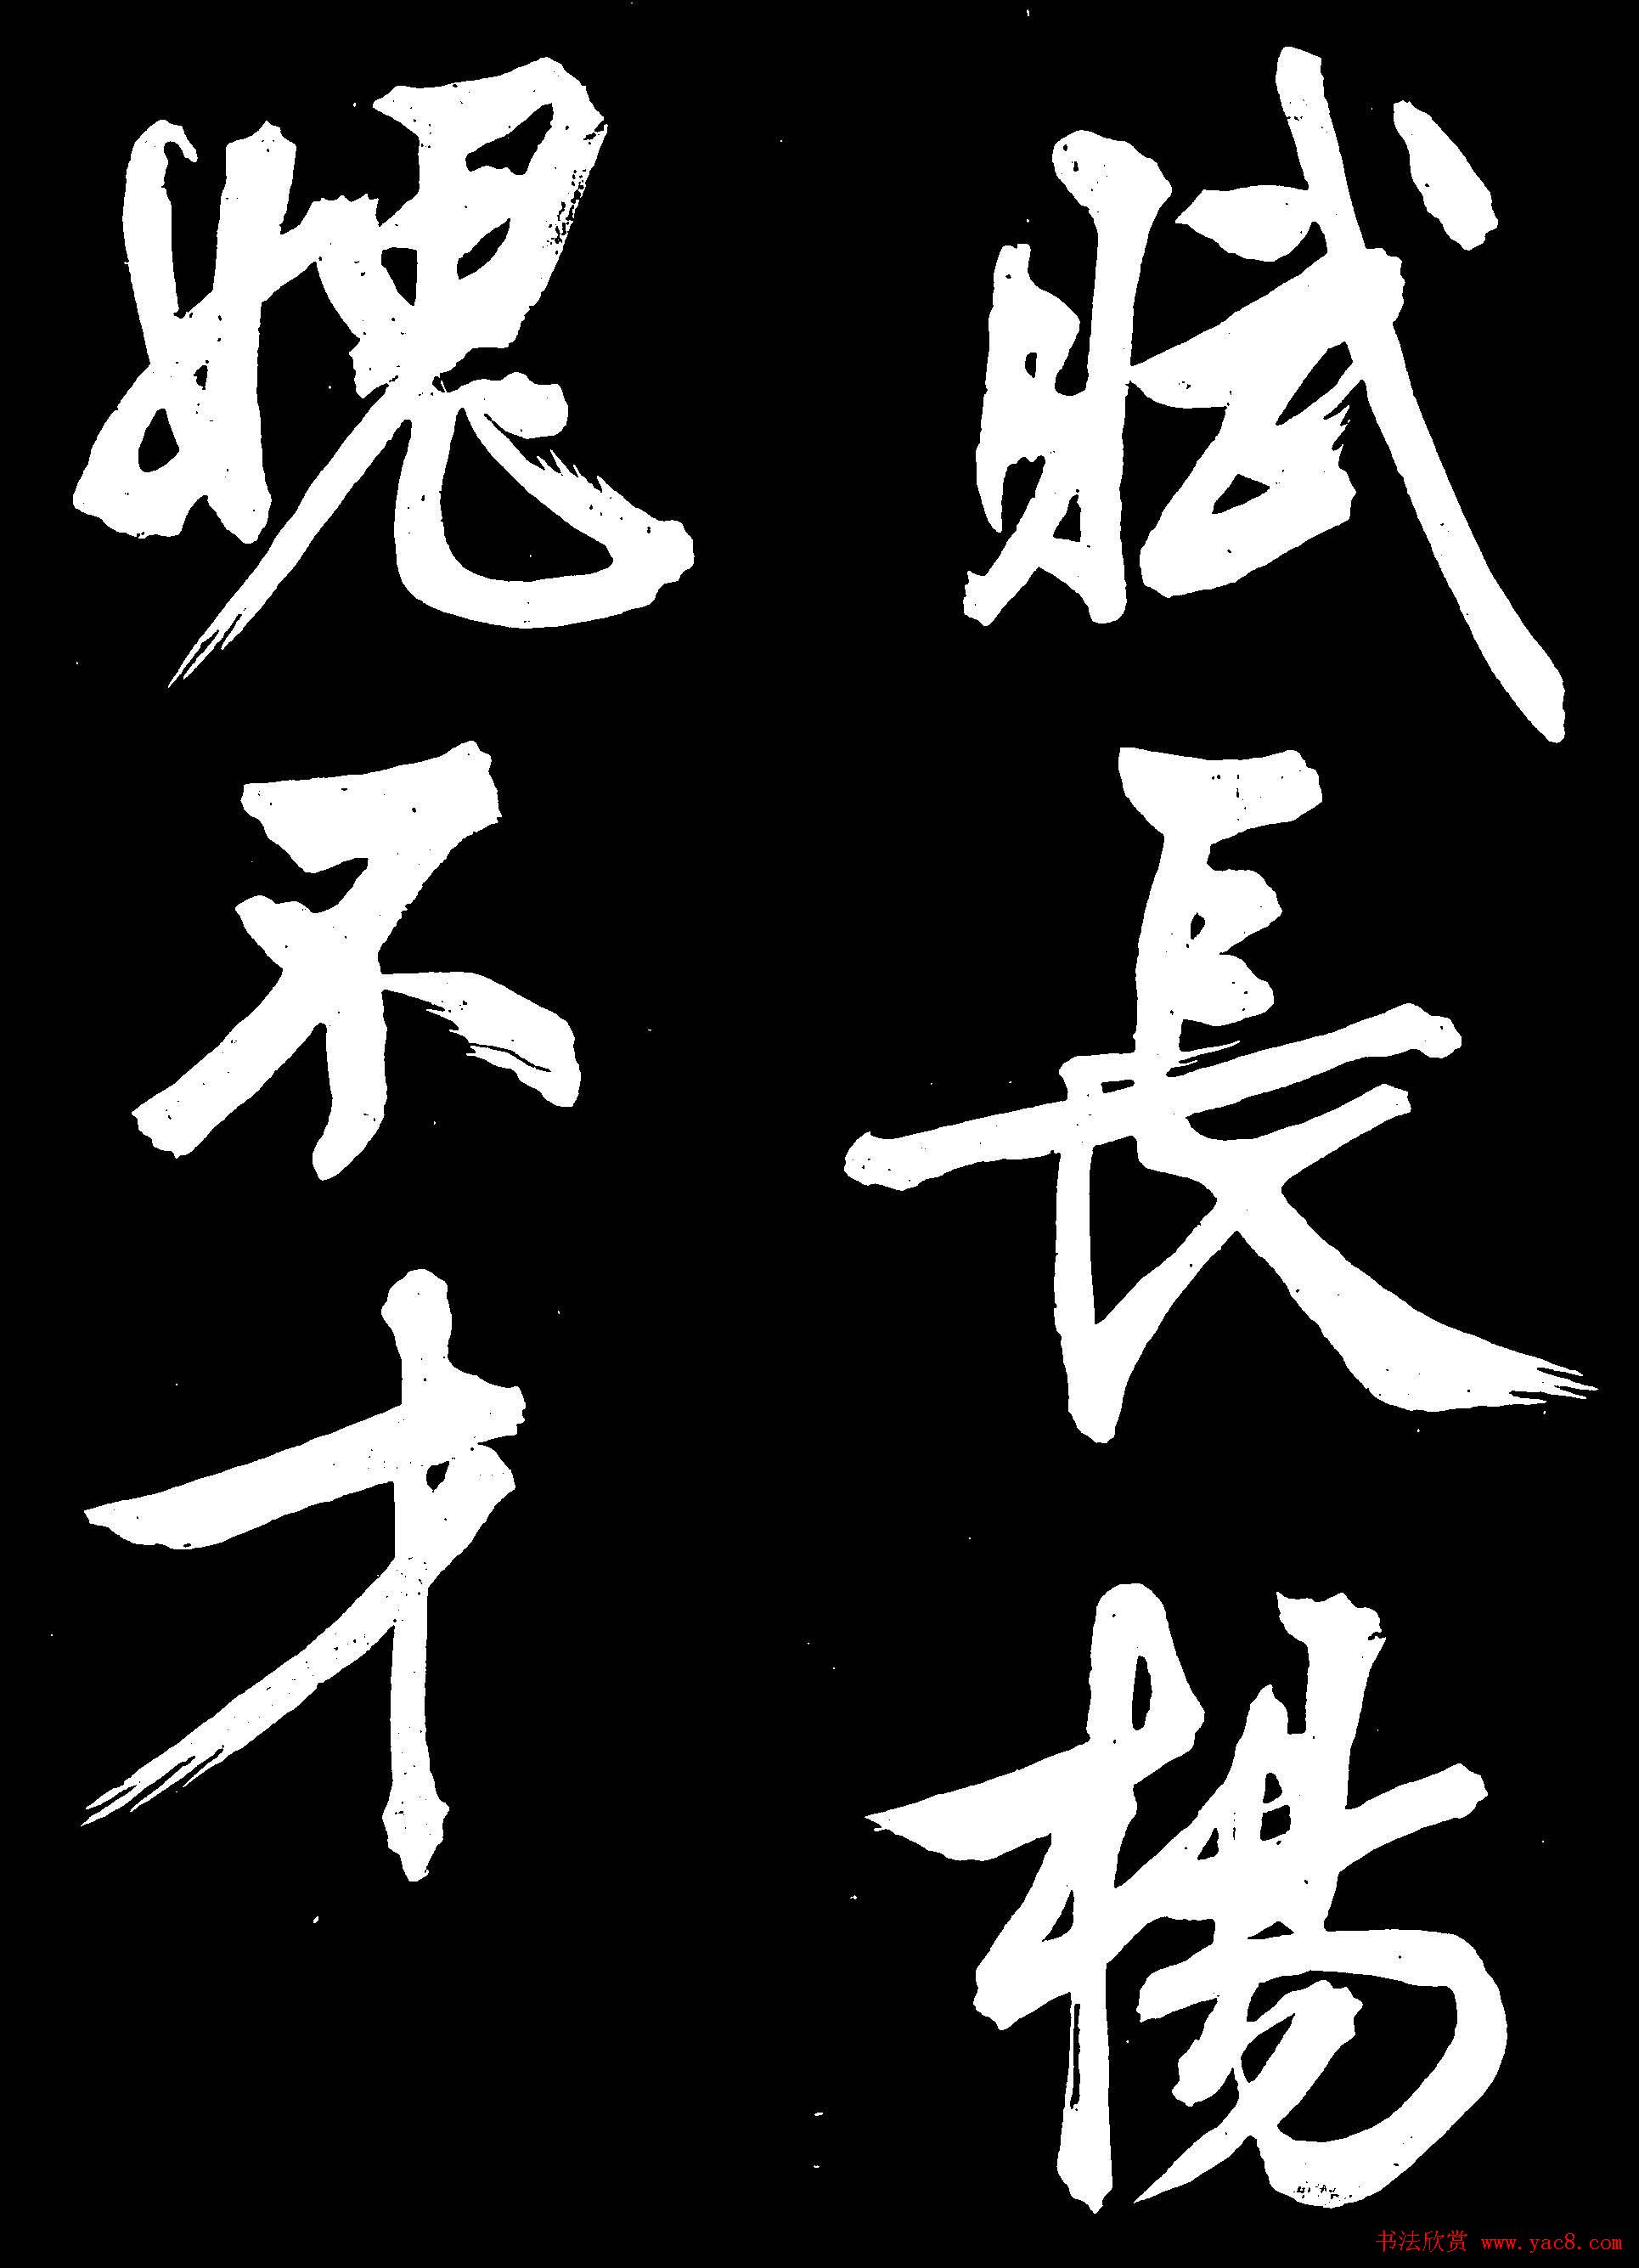 賦長楊
媿不才
书法欣赏 www.yac8.com